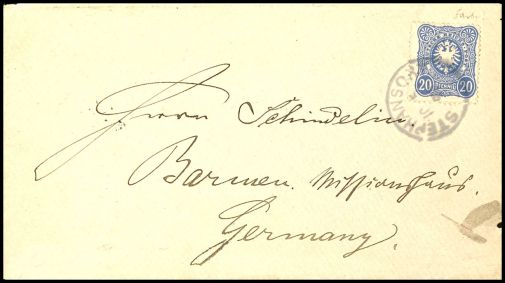 20 PFENNIG 20
STEPHANSO
Herrn Schindelin.
Barmen. Missionshaus.
Germany.